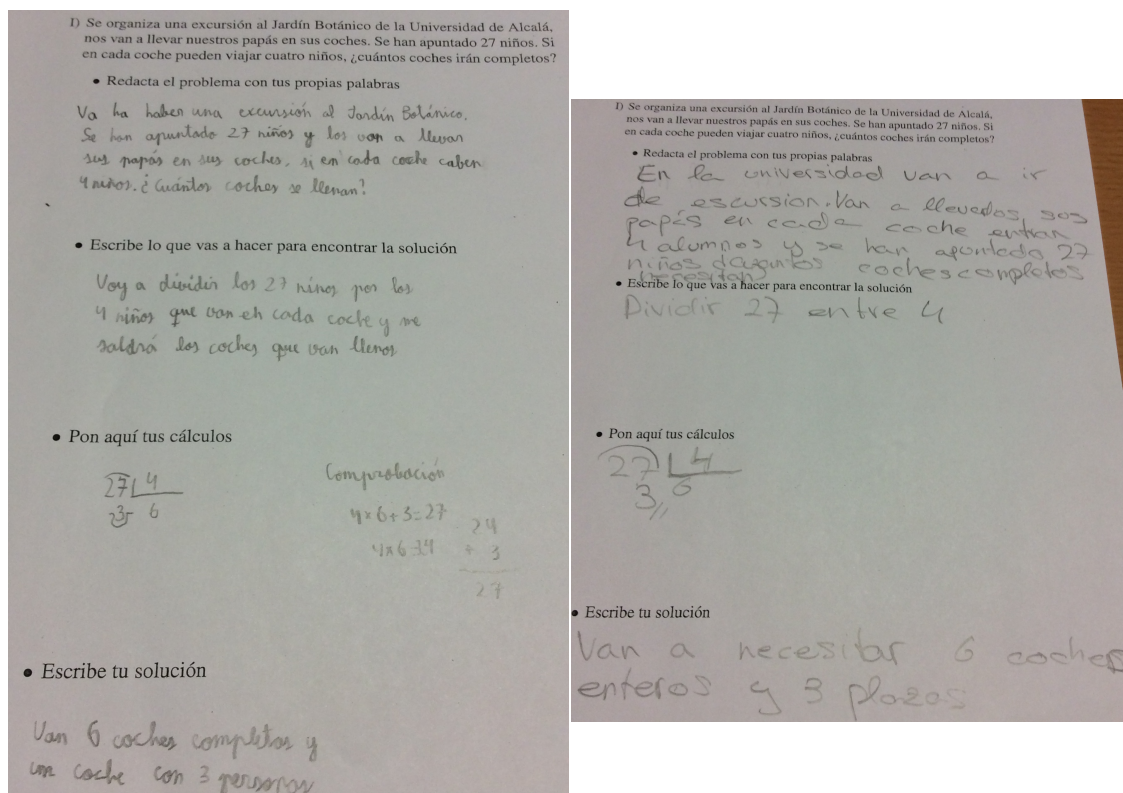 I) Se organiza una excursión al Jardín Botánico de la Universidad de Alcalá,
nos van a llevar nuestros papás en sus coches. Se han apuntado 27 niños. Si
en cada coche pueden viajar cuatro niños, ¿cuántos coches irán completos?
• Redacta el problema con tus propias palabras
Va ha haber una excursión al Jardín Botánico.
Se han apuntado 27 niños y los van a llevar
sus papás en sus coches. si en cada coche caben
4 niños. ¿Cuántos coches se llenan?
• Escribe lo que vas a hacer para encontrar la solución
Voy a dividir los 27 ninos por los
4 niños que van en cada coche y me
saldrá los coches que van llenos
• Pon aquí tus cálculos
27 4
3 6
Comprobación
4×6+3=27
4×6=24
24
+ 3
27
• Escribe tu solución
Van 6 coches completos y
un coche con 3 personas
I) Se organiza una excursión al Jardín Botánico de la Universidad de Alcalá,
nos van a llevar nuestros papás en sus coches. Se han apuntado 27 niños. Si
en cada coche pueden viajar cuatro niños, ¿cuántos coches irán completos?
• Redacta el problema con tus propias palabras
En la universidad van a ir
de escursion. Van a llevarlos sus
papás en cada coche entran
4 alumnos y se han apuntado 27
niños coches completos
• Escribe lo que vas a hacer para encontrar la solución
Dividir 27 entre 4
• Pon aquí tus cálculos
27 4
3 6
• Escribe tu solución
Van a necesitar 6 coches
enteros y 3 plazas